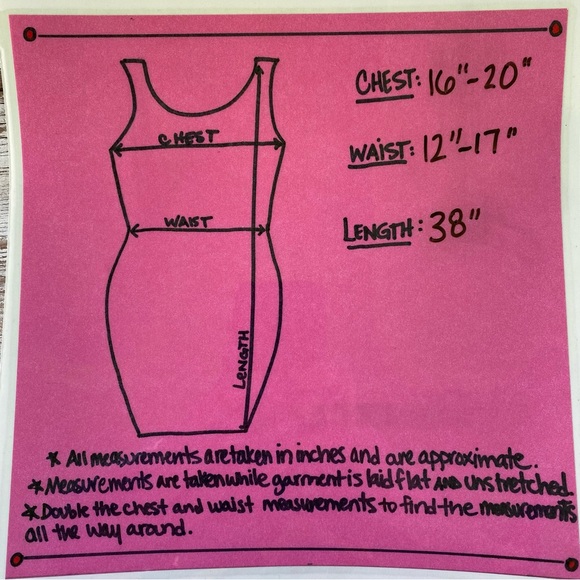 CHEST: 16"-20"
CHEST
WAIST: 12"-17"
WAIST
LENGTH: 38"
LENGTH
* All measurements are taken in inches and are approximate.
* Measurements are taken while garment is laid flat AND unstretched.
* Double the chest and waist measurements to find the measurements
all the way around.